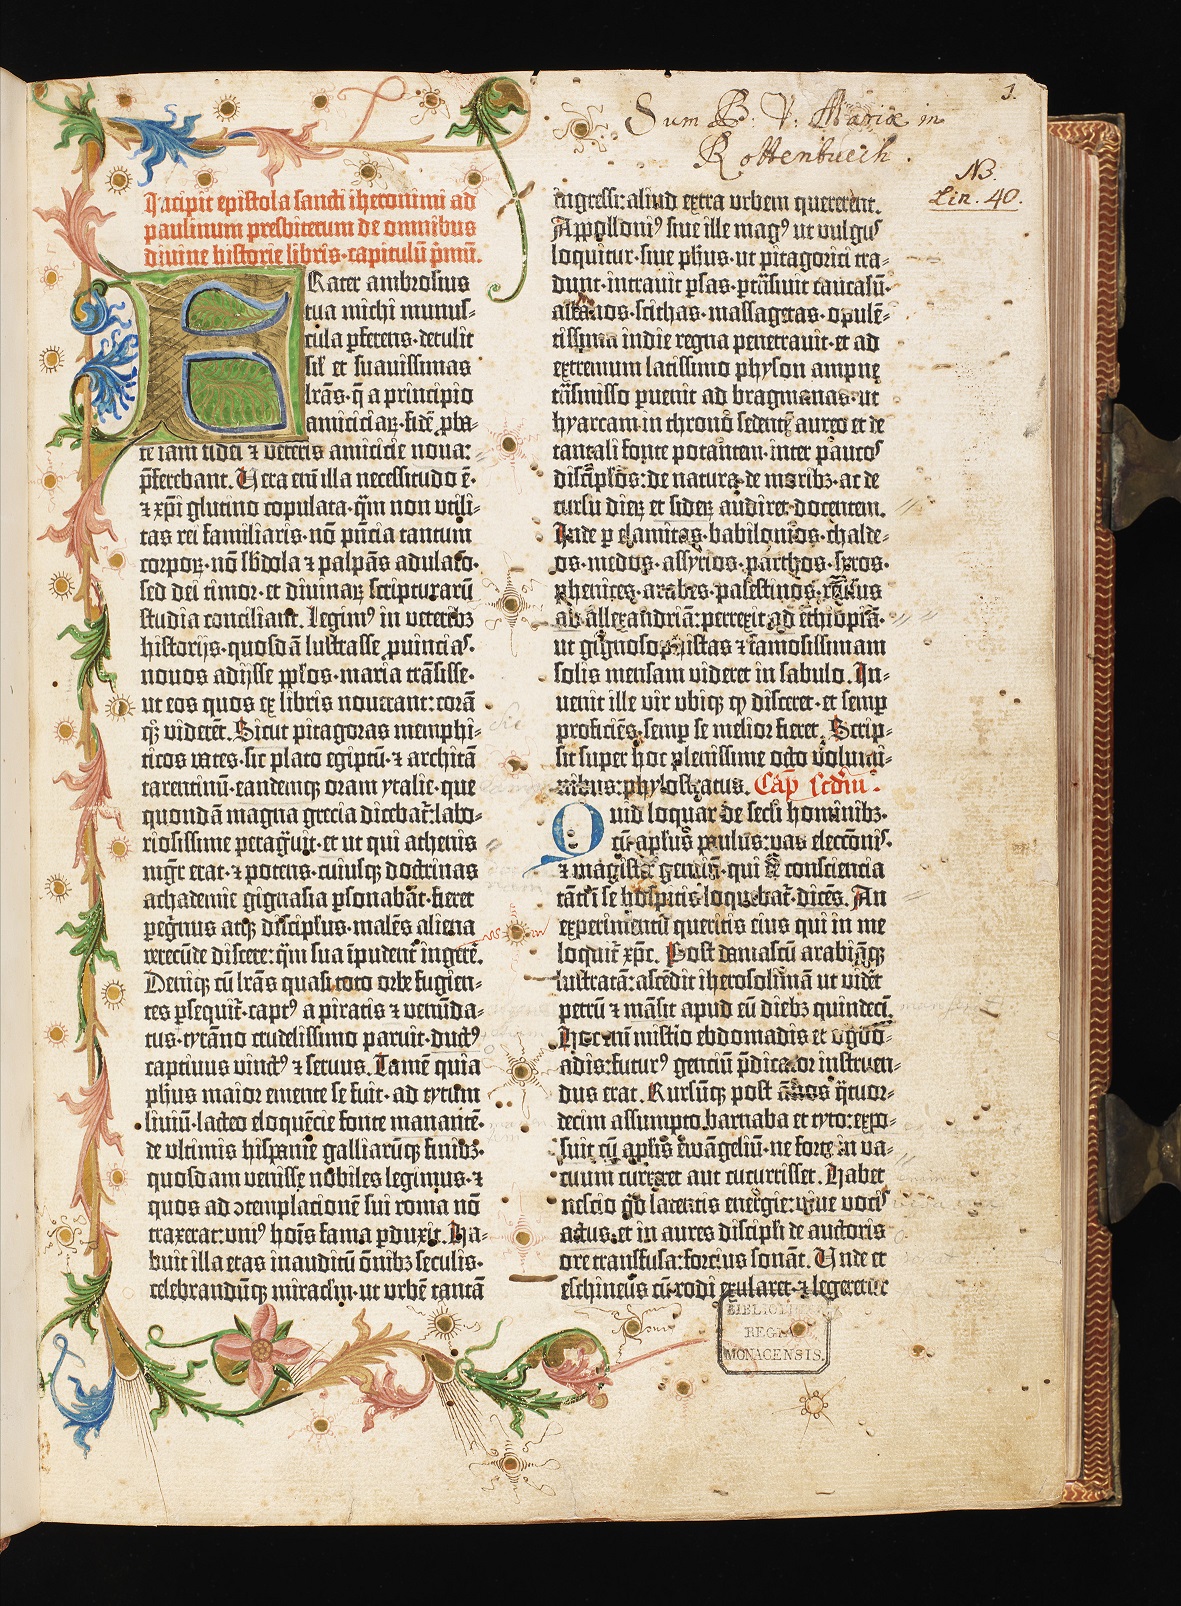 Sum B: V: Mariæ in
Rottenbuech.
1.
NB.
Lin. 40.
Incipit epistola sancti iheronimi ad
paulinum presbiterum de omnibus
divine historie libris·capitulū pⁱmū.
Frater ambrosius
tua michi munus-
cula pferens·detulit
sil' et suavissimas
lrās·q̄ a principio
amiciciaꝝ·fidē ꝓba-
te iam fidei ⁊ veteris amicicie noua:
p̄ferebant. Uera eni illa necessitudo ē·
⁊ xpi glutino copulata·q̄m non utili-
tas rei familiaris·nō pn̄cia tantum
corpoꝝ·nō sbdola ⁊ palpās adulaco·
sed dei timor·et divinaꝝ scripturarū
studia conciliant. Legimꝰ in veteribꝫ
historijs·quosdā lustrasse ꝓuincias·
novos adijsse pplos·maria trāsisse·
ut eos quos ex libris noverant: corā
qꝫ viderēt. Sicut pitagoras memphi-
ticos vates·sic plato egiptū·⁊ architā
tarentinū·eandemqꝫ oram ytalie·que
quondā magna grecia dicebat̄: labo-
riosissime peragᵃuit·et ut qui athenis
mgr̄ erat·⁊ potens·cuiusqꝫ doctrinas
achademie gignasia psonabāt·fieret
peg̓nus atqꝫ discipulus·malēs aliena
verecūde discere: q̄m sua īpudent̓ ingerē.
Deniqꝫ cū lrās quasi toto orbe fugien-
tes psequit̄·captꝰ a piratis ⁊ venūda-
tus·tyrāno crudelissimo paruit·ductꝰ
captivus vinctꝰ ⁊ servus. Tamē quia
phus maior emente se fuit·ad tytum
livium·lacteo eloquēcie fonte manantē·
de ultimis hispanie galliarūqꝫ finibꝫ·
quosdam venisse nobiles legimus·⁊
quos ad ↄtemplacionē sui roma nō
traxerat: uniꝰ hoīs fama pduxit. Ha-
buit illa etas inauditū om̄ibꝫ seculis·
celebrandūqꝫ miraclm·ut urbē tantā
ingressi: aliud extra urbem quererent.
Appolloniꝰ sive ille magꝰ ut vulgus
loquitur·sive phus·ut pitagorici tra-
dunt·intravit psas·ptᵃnsivit caucasū·
albanos·scithas·massagetas·opulē-
tissima indie regna penetravit·et ad
extremum latissimo physon ampne
tᵃsmisso pvenit ad bragmanas·ut
hyarcam in throno sedentē aureo et de
tantali fonte potantem·inter paucos
discipulos: de natura·de moribꝫ·ac de
cursu dieꝝ et sideꝝ audiret docentem.
Inde p elamitas·babilonios·chalde-
os·medos·assyrios·parthos·siros·
phenices·arabes·palestinos·reversus
ad allexandriā: perrexit ad ethiopiā·
ut gignosophistas ⁊ famosissimam
solis mensam videret in sabulo. In-
venit ille vir ubiqꝫ qᵒ disceret·et semp
proficiēs·semp se melior fieret. Scrip-
sit super hoc plenissime octo volumi-
nibus: phylostratus. Cap̄ scdm̄.
Quid loquar de secli hominibꝫ·
cū aplus paulus: vas eleccōnis·
⁊ magister genciū·qui de consciencia
tāti ī se hospitis loquebat̄·dicēs. An
experimentū queritis eius qui in me
loquit̄ xpc. Post damascū arabiāqꝫ
lustratā: ascēdit iherosolimā ut videt̓
petrū ⁊ māsit apud eū diebꝫ quindecī.
Hoc eni mistio ebdomadis et ogdo-
adis: futurꝰ genciū pdicator instruen-
dus erat. Rursūqꝫ post ānos qᵃtuor-
decim assumpto barnaba et tyto: expo-
suit cū aplis ewāgeliū·ne forte in va-
cuum curreret aut cucurrisset. Habet
nescio qd latentis energie: vive vocis
actus·et in aures discipli de auctoris
ore transfusa: forcius sonāt. Unde et
eschineus cū rodi exularet·⁊ legeretur
BIBLIOTHECA
REGIA
MONACENSIS.